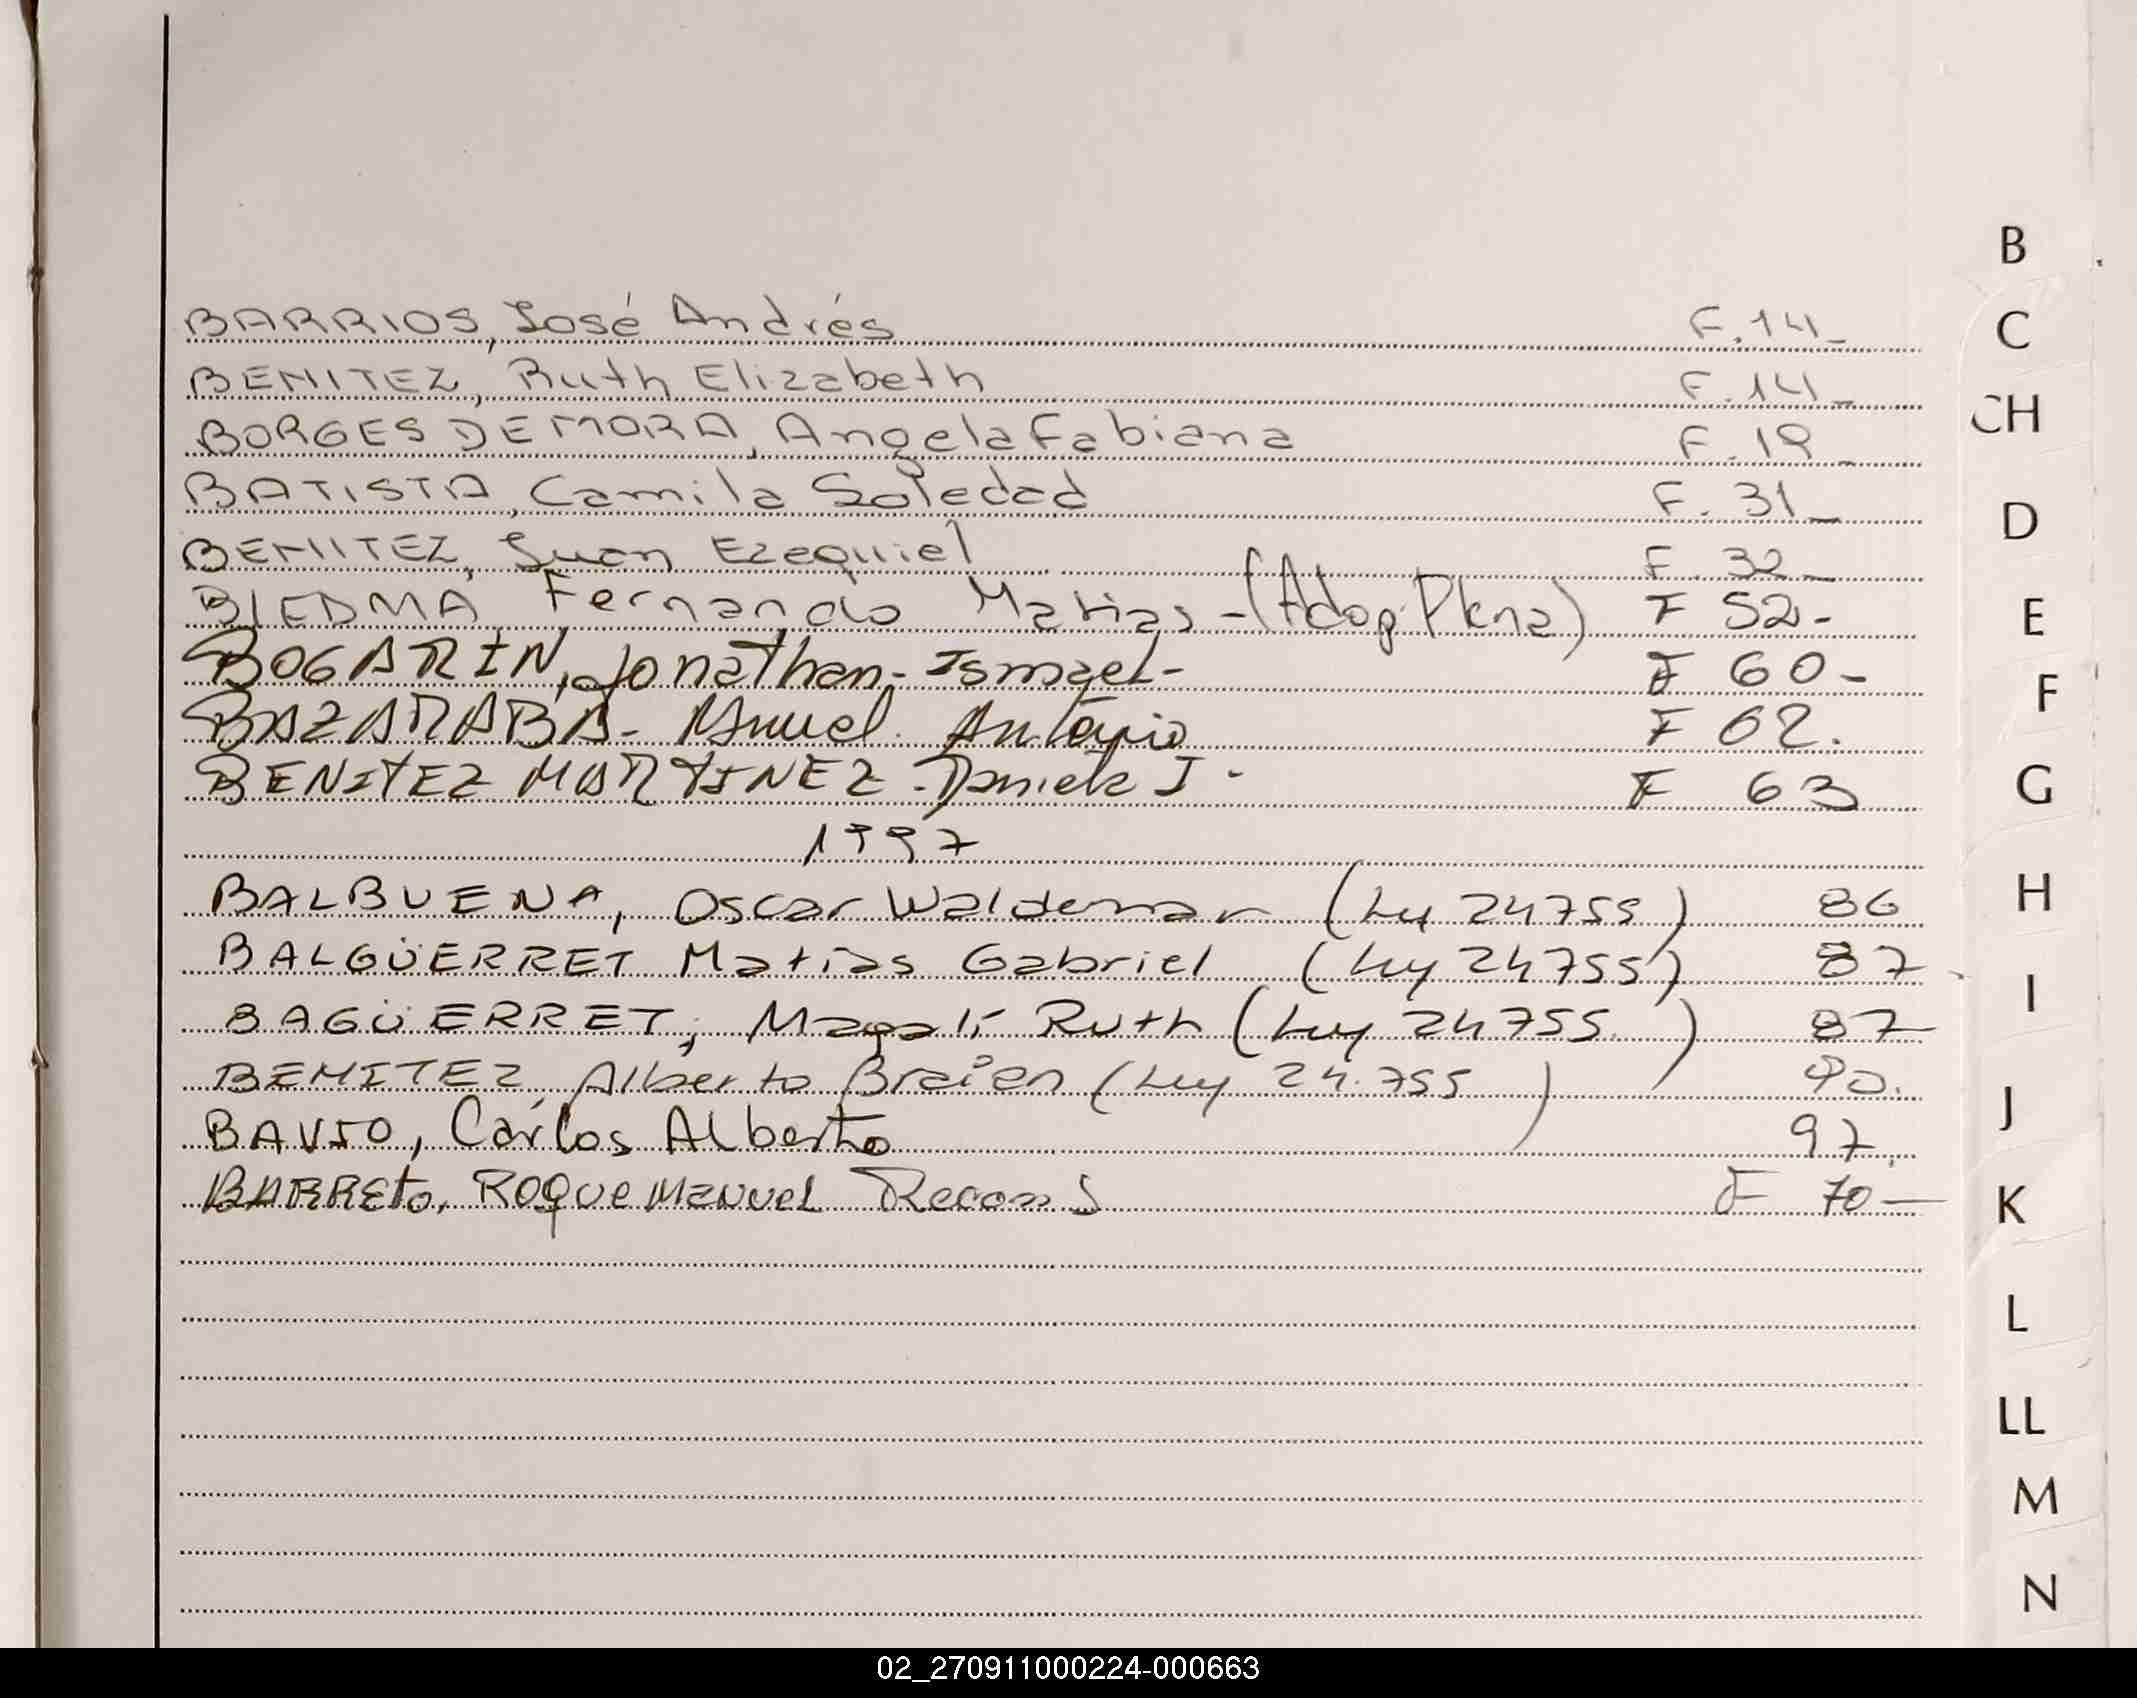 B
BARRIOS, José Andrés F.14-
C
BENITEZ, Ruth Elizabeth F.14-
CH
BORGES DE MORA, Angela Fabiana F.18-
BATISTA, Camila Soledad F.31-
D
BENITEZ, Juan Ezequiel F.32-
BIEDMA Fernando Matias-(Adop.Plena) F 52-
E
BOGARIN, Jonathan-Ismael- F 60-
F
BAZARABA- Manuel Antonio F 62.
BENITEZ MARTINEZ-Daniela I- F 63
G
1997
BALBUENA, Oscar Waldemar (Ley 24755) 86
H
BALGÜERRET Matías Gabriel (Ley 24755) 87
I
BAGÜERRET, Magalí Ruth (Ley 24755.) 87
BENITEZ Alberto Braian (Ley 24.755) 90.
J
BAVIO, Carlos Alberto 97.
BARRETO, ROQUE MANUEL F 70-
K
L
LL
M
N
02_270911000224-000663